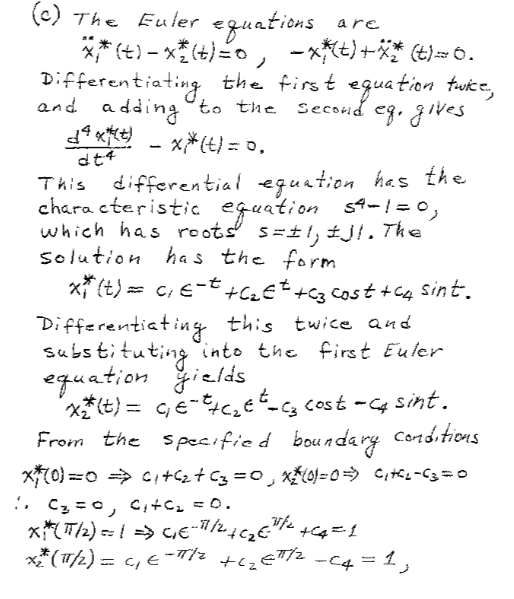 (c) The Euler equations are
ẍ₁*(t) − x₂*(t) = 0, −x₁*(t) + ẍ₂*(t) = 0.
Differentiating the first equation twice,
and adding to the second eq. gives
d⁴x₁*(t)/dt⁴ − x₁*(t) = 0.
This differential equation has the
characteristic equation s⁴−1=0,
which has roots s=±1, ±j1. The
solution has the form
x₁*(t) = c₁ε^−t + c₂ε^t + c₃ cos t + c₄ sin t.
Differentiating this twice and
substituting into the first Euler
equation yields
x₂*(t) = c₁ε^−t + c₂ε^t − c₃ cos t − c₄ sin t.
From the specified boundary conditions
x₁*(0)=0 ⇒ c₁+c₂+c₃=0, x₂*(0)=0 ⇒ c₁+c₂−c₃=0
∴ c₃=0, c₁+c₂=0.
x₁*(π/2)=1 ⇒ c₁ε^−π/2 + c₂ε^π/2 + c₄=1
x₂*(π/2) = c₁ε^−π/2 + c₂ε^π/2 − c₄ = 1,